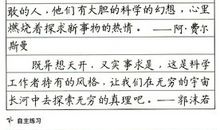 敢的人，他们有大胆的科学的幻想，心里
燃烧着探求新事物的热情。——阿·费尔
斯曼
既异想天开，又实事求是，这是科学
工作者特有的风格，让我们在无穷的宇宙
长河中去探索无穷的真理吧。——郭沫若
自主练习